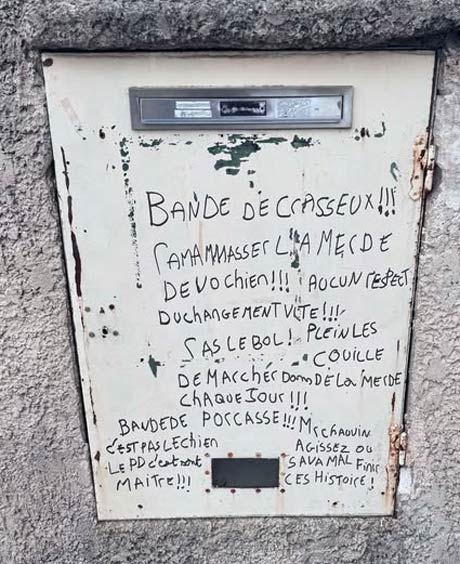 BANDE DE CRASSEUX!!!
RAMAMMASSER LIA MERDE
DE VO CHIEN!!! AUCUN RESPECT
DU CHANGEMENT VITE!!!
SAS LE BOL! PLEIN LES
COUILLE
DE MARCHÉR Dans DE La MERDE
CHAQUE JOUR!!!
BANDE DE PORCASSE!!!
C'EST PAS LE Chien
LE PD c'est
MAITRE!!!
Mr CHAQUIN
AGISSEZ OU
SAVA MAL Finir
CES HISTOIRE!